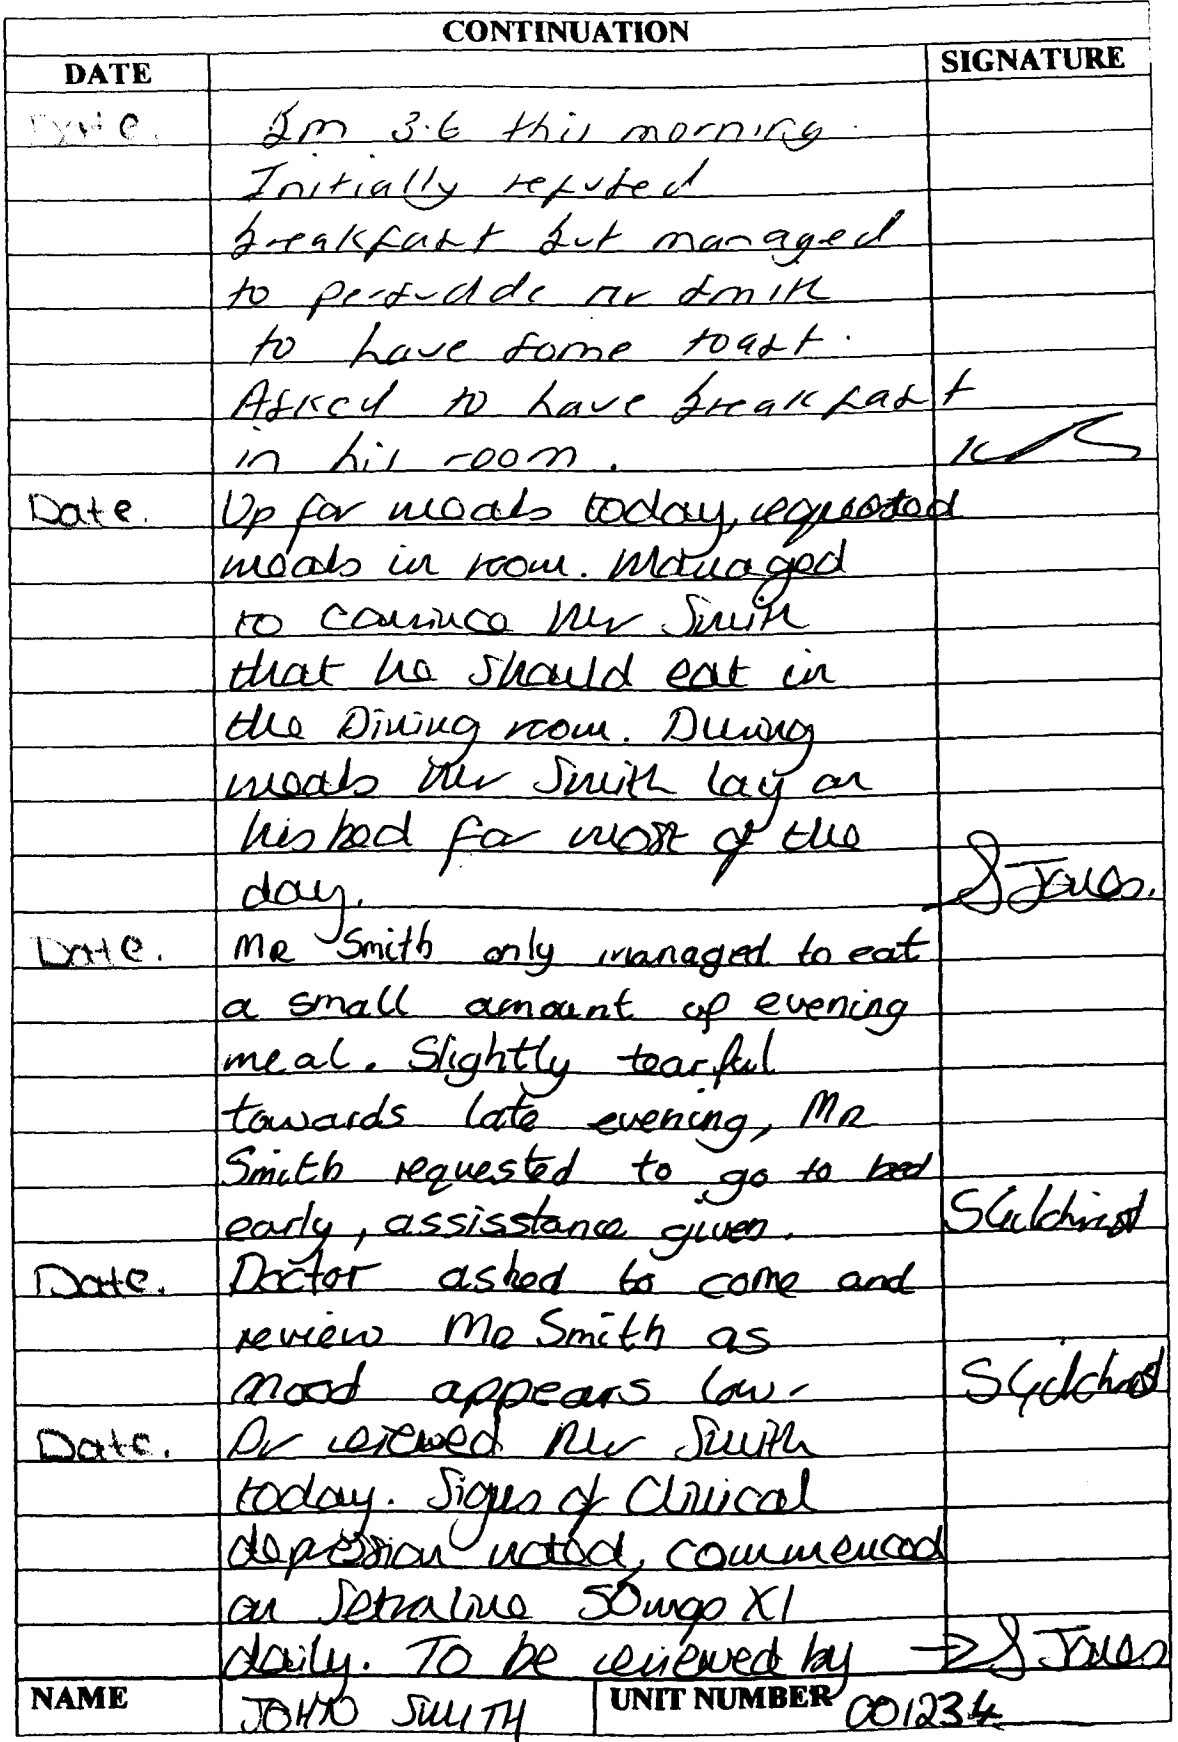 CONTINUATION
DATE SIGNATURE
Date. Bm 3.6 this morning.
Initially refused
breakfast but managed
to persuade Mr Smith
to have some toast.
Asked to have breakfast
in his room.
Date. Up for meals today, requested
meals in room. Managed
to convince Mr Smith
that he should eat in
the Dining room. During
meals Mr Smith lay on
his bed for most of the
day. S Jones.
Date. MR Smith only managed to eat
a small amount of evening
meal. Slightly tearful
towards late evening, MR
Smith requested to go to bed
early, assisstance given. S Gilchrist
Date. Doctor asked to come and
review MR Smith as
mood appears low. S Gilchrist
Date. Dr reviewed Mr Smith
today. Signs of Clinical
depression noted, commenced
on Setraline 50mgs X1
daily. To be reviewed by → S Jones
NAME JOHN SMITH UNIT NUMBER 001234